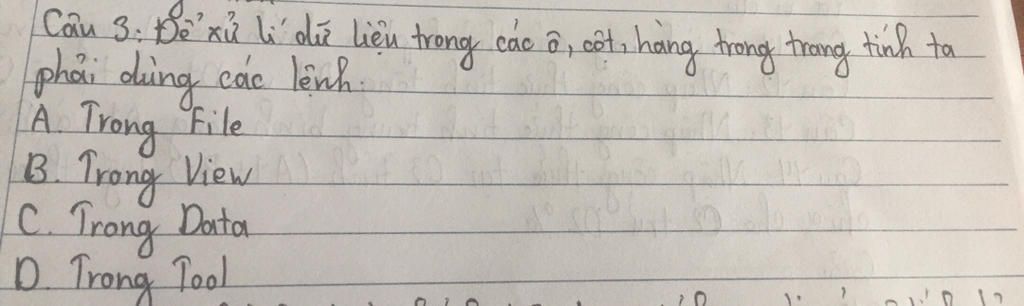 Câu 3: Để xử lí dữ liệu trong các ô, cột, hàng trong trang tính ta
phải dùng các lệnh:
A. Trong File
B. Trong View
C. Trong Data
D. Trong Tool